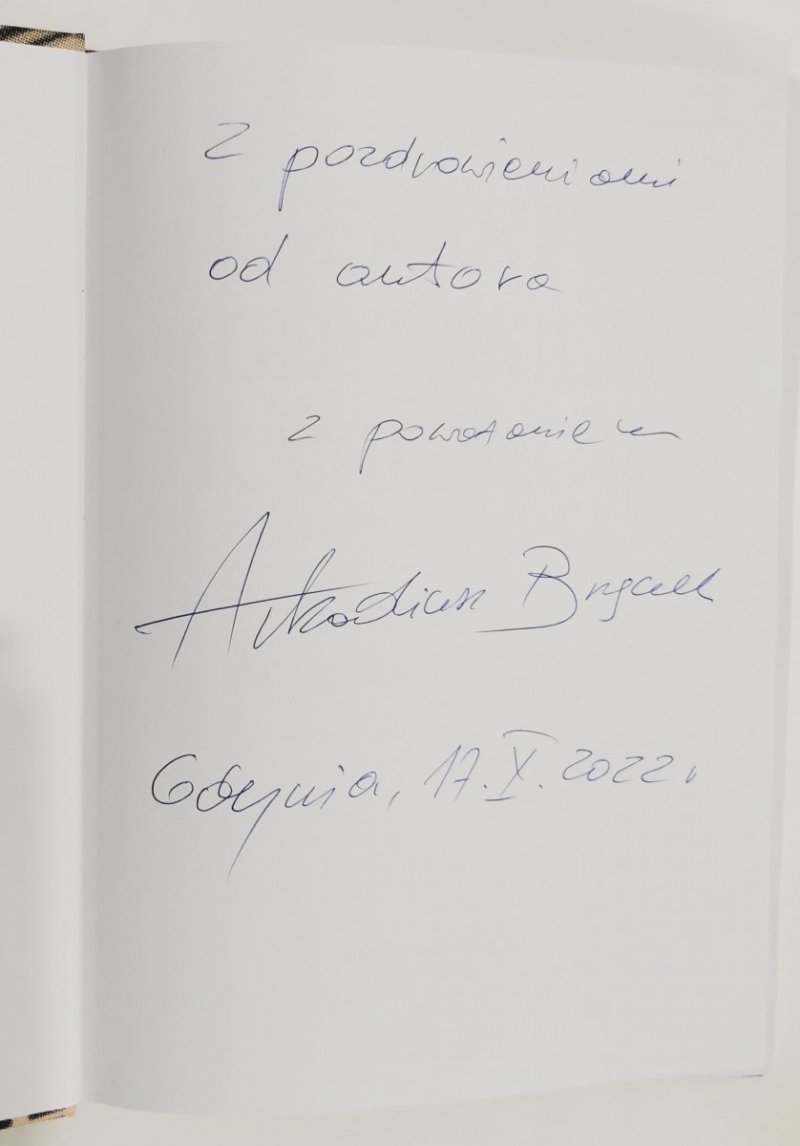 Z pozdrowieniami
od autora
z poważaniem
Arkadiusz
Gdynia, 17.X.2022r